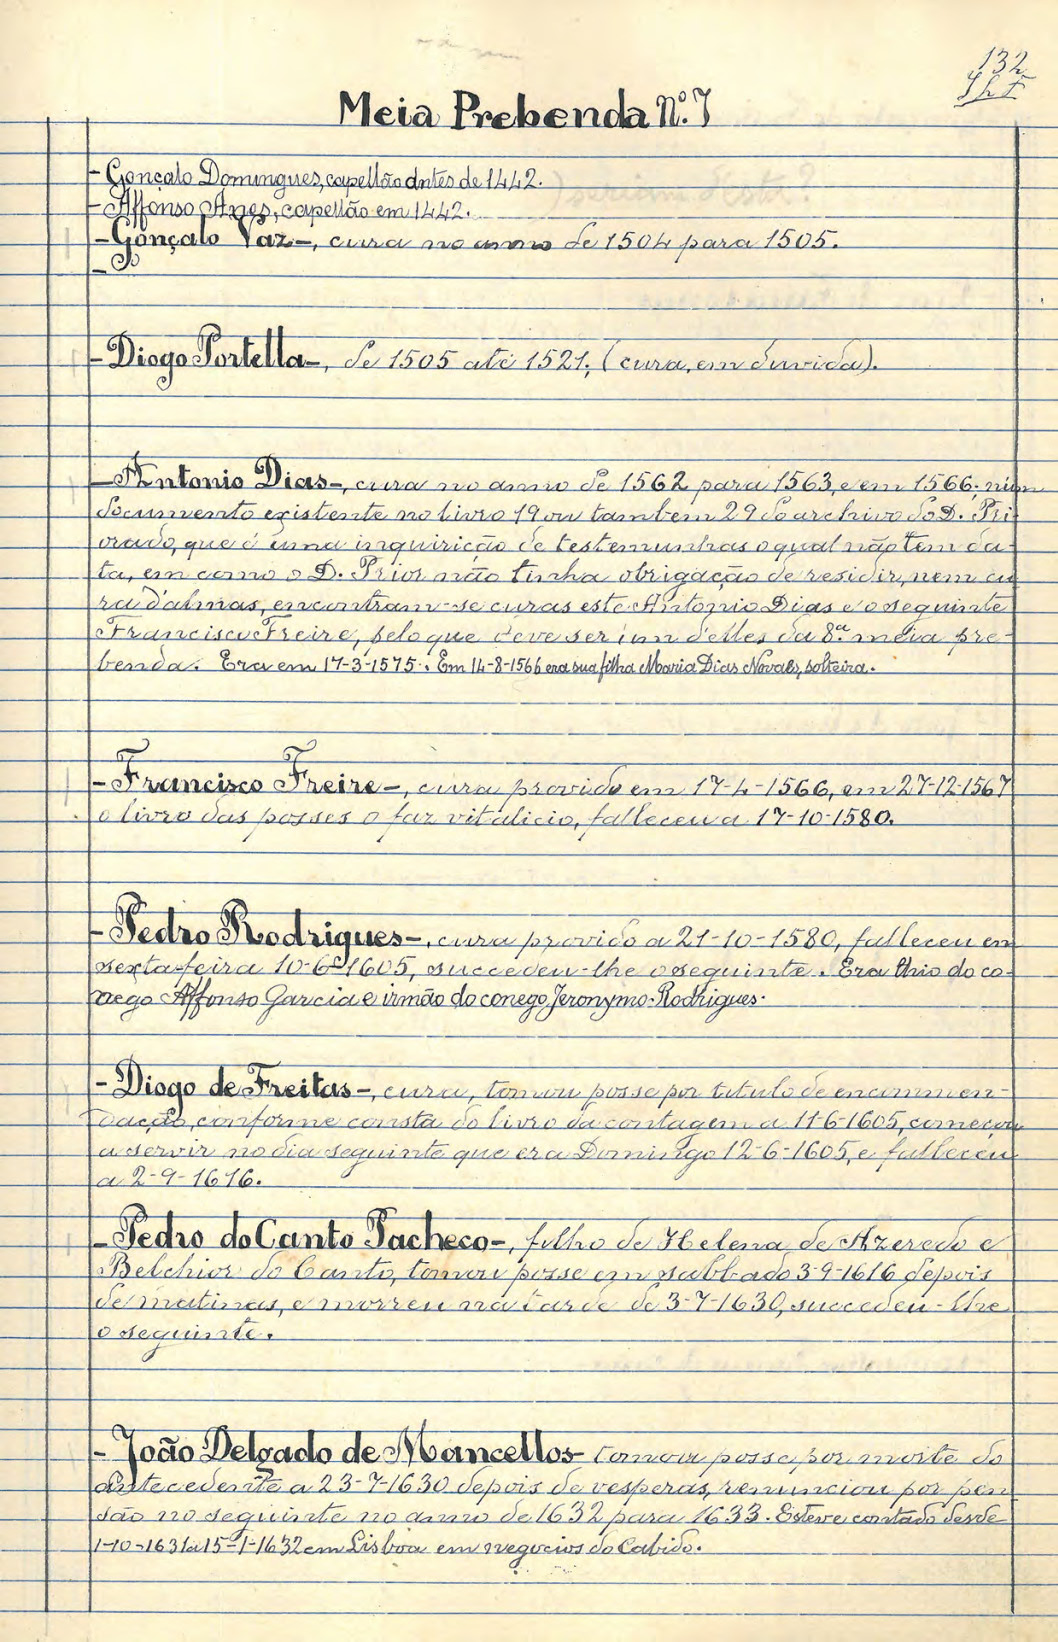 132
Meia Prebenda Nº. 7
- Gonçalo Domingues, capellão antes de 1442.
- Affonso Anes, capellão em 1442.
- Gonçalo Vaz -, cura no anno de 1504 para 1505.
- P
- Diogo Portella -, de 1505 até 1521; (cura, em duvida).
- Antonio Dias -, cura no anno de 1562 para 1563, e em 1566; num
documento existente no livro 19 ou tambem 29 do archivo do D. Pri-
orado, que é uma inquirição de testemunhas o qual não tem da-
ta, em como o D. Prior não tinha obrigação de residir, nem cu-
ra d'almas, encontram-se curas este Antonio Dias e o seguinte
Francisco Freire, pelo que deve ser um d'elles da 8.ª meia pre-
benda. Era em 17-3-1575. Em 14-8-1566 era sua filha Maria Dias Novaes, solteira.
- Francisco Freire -, cura provido em 17-4-1566, em 27-12-1567
o livro das posses o faz vitalicio, falleceu a 17-10-1580.
- Pedro Rodrigues -, cura provido a 21-10-1580, falleceu em
sexta-feira 10-6-1605, succedeu-lhe o seguinte. Era thio do co-
nego Affonso Garcia e irmão do conego Jeronymo Rodrigues.
- Diogo de Freitas -, cura, tomou posse por titulo de encommen-
dação, conforme consta do livro da contagem a 11-6-1605, começou
a servir no dia seguinte que era Domingo 12-6-1605, e falleceu
a 2-9-1616.
- Pedro do Canto Pacheco -, filho de Helena de Azeredo e
Belchior do Canto, tomou posse em sabbado 3-9-1616 depois
de matinas, e morreu na tarde de 3-7-1630, succedeu-lhe
o seguinte.
- João Delgado de Mancellos - tomou posse por morte do
antecedente a 23-7-1630 depois de vesperas, renunciou por pen-
são no seguinte no anno de 1632 para 1633. Esteve contado desde
1-10-1631 a 15-1-1632 em Lisboa em negocios do Cabido.